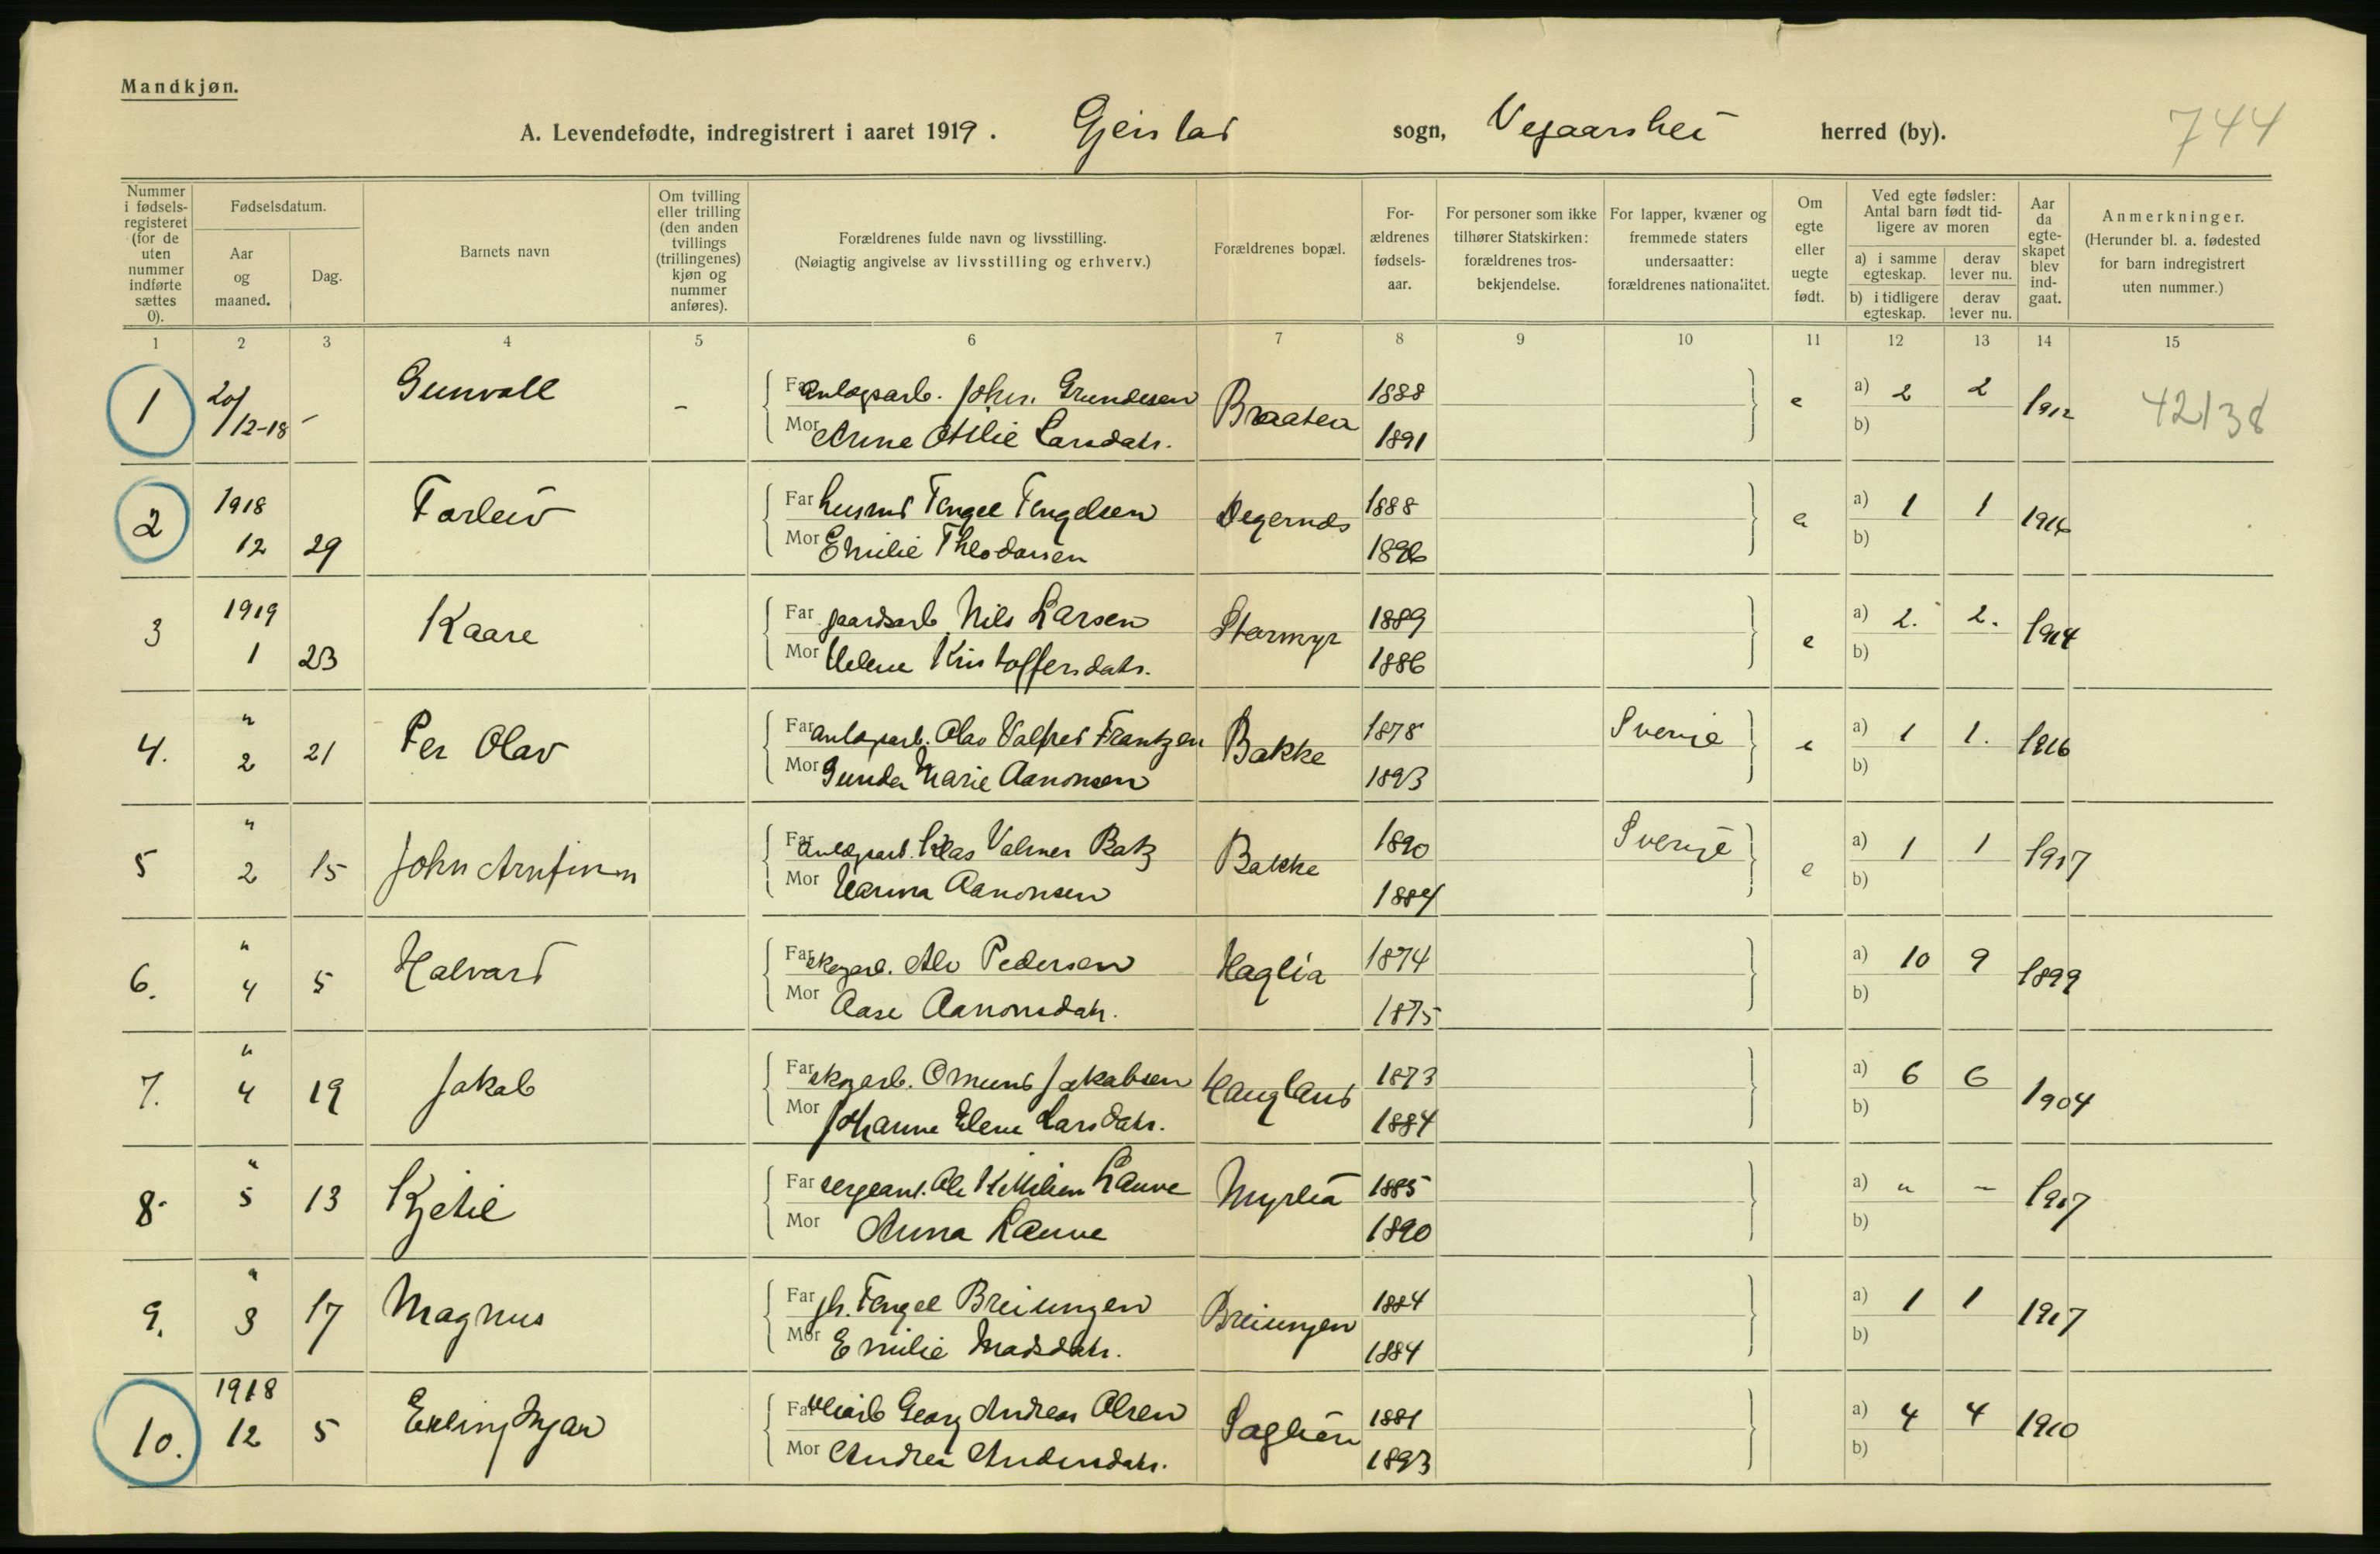 Mandkjøn.
A. Levendefødte, indregistrert i aaret 1919. Gjerstad sogn, Vegaarshei herred (by).
744
Nummer i fødsels-registeret (for de uten nummer indførte sættes 0).
Fødselsdatum.
Aar og maaned.
Dag.
Barnets navn
Om tvilling eller trilling (den anden tvillings (trillingenes) kjøn og nummer anføres).
Forældrenes fulde navn og livsstilling.
(Nøiagtig angivelse av livsstilling og erhverv.)
Forældrenes bopæl.
For-ældrenes fødsels-aar.
For personer som ikke tilhører Statskirken: forældrenes tros-bekjendelse.
For lapper, kvæner og fremmede staters undersaatter: forældrenes nationalitet.
Om egte eller uegte født.
Ved egte fødsler: Antal barn født tid-ligere av moren
a) i samme egteskap.
derav lever nu.
b) i tidligere egteskap.
derav lever nu.
Aar da egte-skapet blev ind-gaat.
Anmerkninger.
(Herunder bl. a. fødested for barn indregistrert uten nummer.)
1 2 3 4 5 6 7 8 9 10 11 12 13 14 15
1 20/12-18 - Gunvall - Far anlægsarb. John Grundesen Braaten 1888 e a) 2 2 1912 42138
Mor Anne Otilie Larsdatr. 1891 b)
2 1918 Torleiv Far husmd Tengel Tengelsen Degernes 1888 e a) 1 1 1916
12 29 Mor Emilie Theodorsen 1896 b)
3 1919 Kaare Far gaardsarb Nils Larsen Stormyr 1889 e a) 2. 2. 1914
1 23 Mor Helene Kristoffersdatr. 1886 b)
4. " Per Olav Far anlægsarb. Olav Valfred Frantzen Bakke 1878 Sverige e a) 1 1. 1916
2 21 Mor Gunda Marie Aanonsen 1893 b)
5 " John Arnfinn Far anlægsarb. Klas Valmer Ratz Bakke 1890 Sverige e a) 1 1 1917
2 15 Mor Hanna Aanonsen 1884 b)
6. " Halvard Far skogarb. Alv Pedersen Haglia 1874 a) 10 9 1899
4 5 Mor Aase Aanonsdatr. 1875 b)
7. " Jakob Far skogarb. Omund Jakobsen Haugland 1873 a) 6 6 1904
4 19 Mor Johanne Elene Larsdatr. 1884 b)
8. " Kjetil Far sergeant. Ole Kittilsen Lauve Myrlia 1885 a) " - 1917
5 13 Mor Anna Lauve 1890 b)
9. " Magnus Far Tengel Breiungen Breiungen 1884 a) 1 1 1917
3 17 Mor Emilie Madsdatr. 1884 b)
10. 1918 Erling Far Georg Andreas Olsen 1881 a) 4 4 1910
12 5 Mor Andrea Andersdatr. 1893 b)